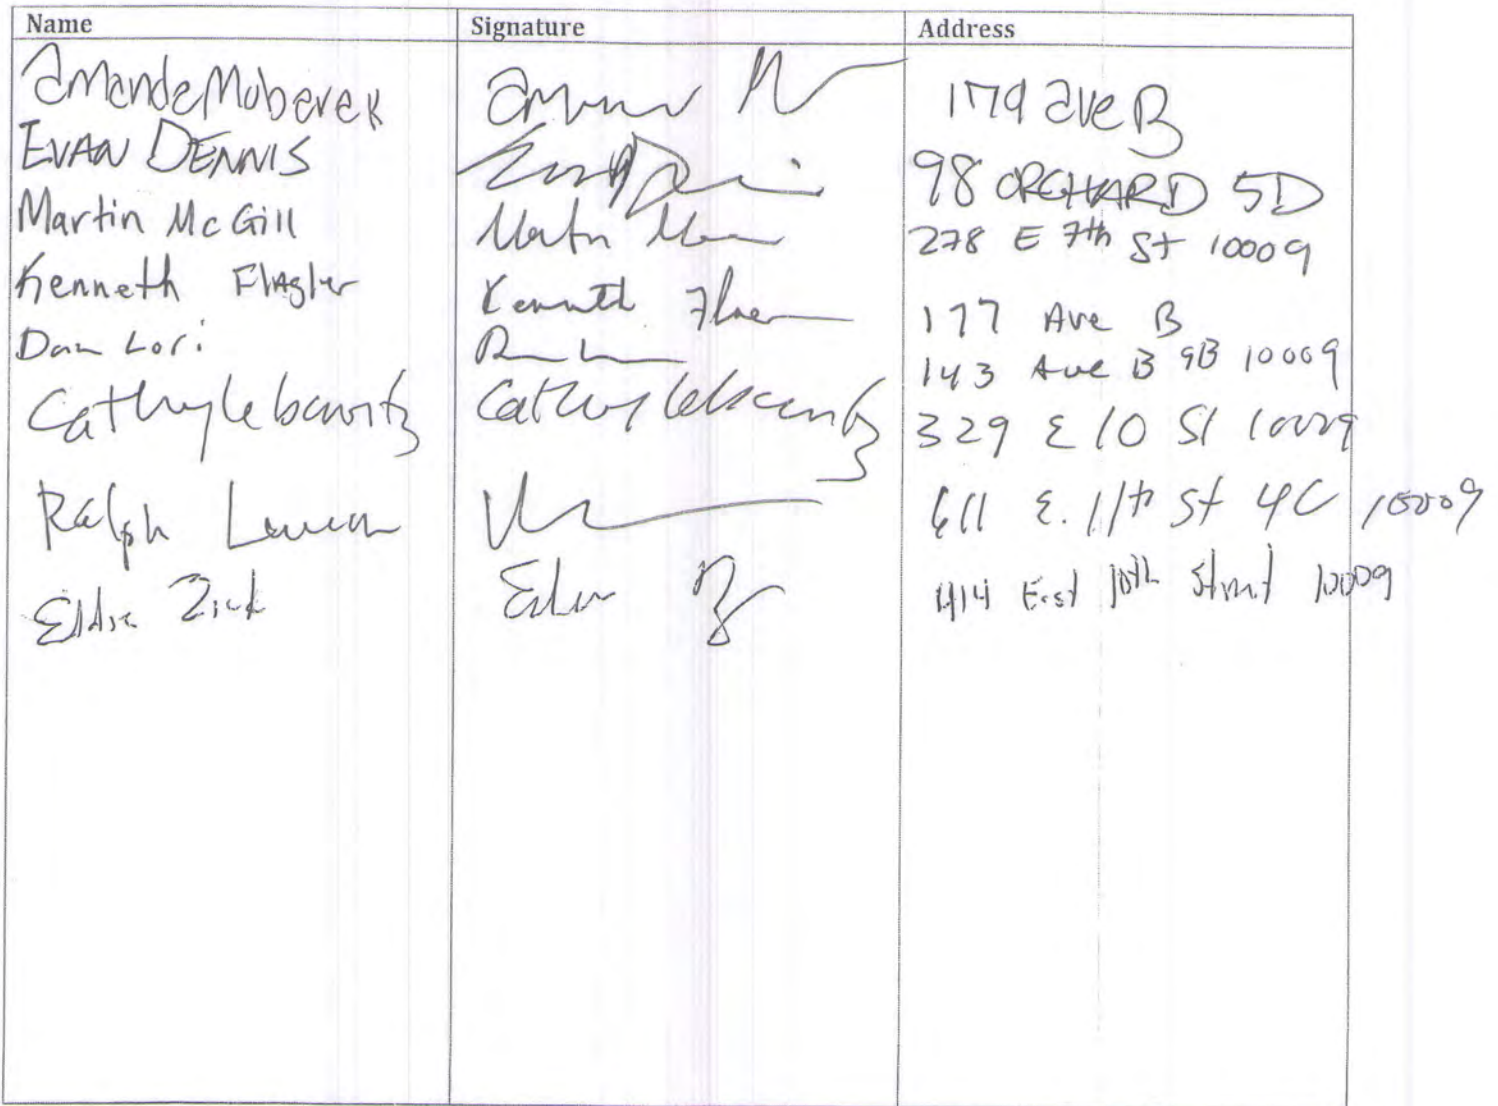 Name Signature Address
Amanda Mubarek 179 Ave B
EVAN DENNIS 98 ORCHARD 5D
Martin McGill 278 E 7th St 10009
Kenneth Flagler Kenneth 177 Ave B
Dan Lori 143 Ave B 9B 10009
Cathy Lebowitz Cathy Lebowitz 329 E 10 St 10009
Ralph 611 E. 11th St 4C 10009
Eddie 414 East 10th Street 10009